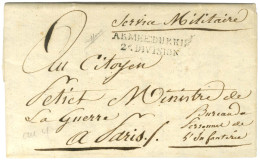 Service Militaire
ARMÉE DU RHIN
2e DIVISION
Au Citoyen
Petiet Ministre de
La Guerre
Bureau du
Personnel de
l'Infanterie
a Paris /.